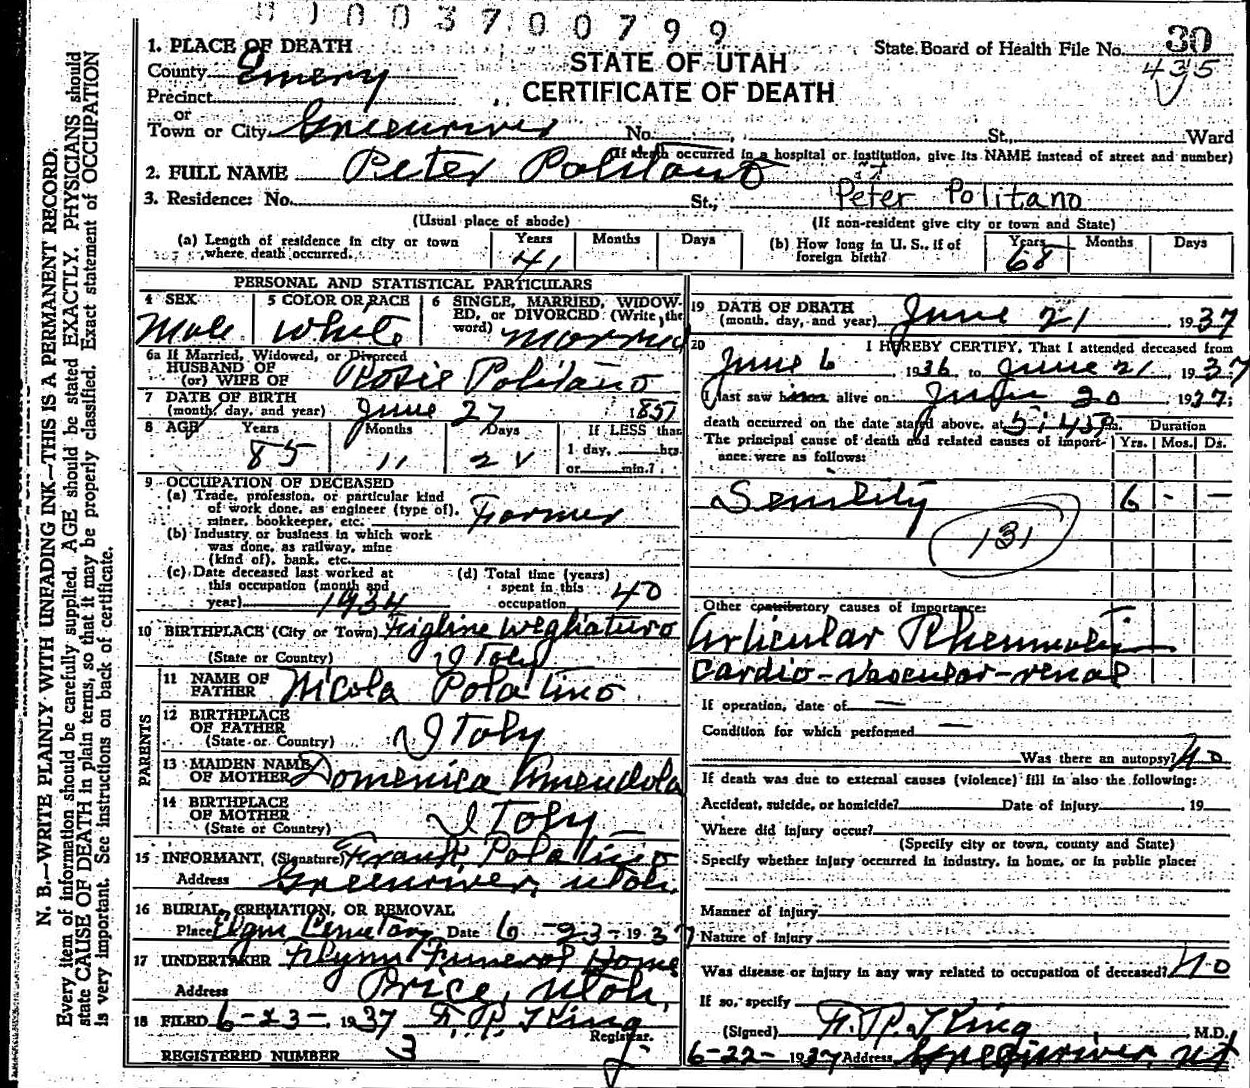 00003700799
State Board of Health File No. 30
435
STATE OF UTAH
CERTIFICATE OF DEATH
1. PLACE OF DEATH
County Emery
Precinct
or
Town or City Greenriver No. St., Ward
(If death occurred in a hospital or institution, give its NAME instead of street and number)
2. FULL NAME Peter Politano
3. Residence: No. St., Peter Politano
(Usual place of abode) (If non-resident give city or town and State)
(a) Length of residence in city or town where death occurred. Years 41 Months Days
(b) How long in U. S., if of foreign birth? Years 68 Months Days
PERSONAL AND STATISTICAL PARTICULARS
4 SEX Male
5 COLOR OR RACE White
6 SINGLE, MARRIED, WIDOWED, or DIVORCED (Write the word) Married
6a If Married, Widowed, or Divorced
HUSBAND OF
(or) WIFE OF Rosie Politano
7 DATE OF BIRTH
(month, day, and year) June 27 1851
8 AGE Years 85 Months 11 Days 24 If LESS than
1 day, hrs.
or min.?
9 OCCUPATION OF DECEASED
(a) Trade, profession, or particular kind
of work done, as engineer (type of),
miner, bookkeeper, etc. Farmer
(b) Industry or business in which work
was done, as railway, mine
(kind of), bank, etc.
(c) Date deceased last worked at
this occupation (month and
year) 1934
(d) Total time (years)
spent in this
occupation 40
10 BIRTHPLACE (City or Town) Figline Wegliaturo
(State or Country) Italy
PARENTS
11 NAME OF
FATHER Nicola Polatino
12 BIRTHPLACE
OF FATHER
(State or Country) Italy
13 MAIDEN NAME
OF MOTHER Domenica Amendola
14 BIRTHPLACE
OF MOTHER
(State or Country) Italy
15 INFORMANT, (Signature) Frank Polatino
Address Greenriver, Utah.
16 BURIAL, CREMATION, OR REMOVAL
Place Elgin Cemetary Date 6-23-1937
17 UNDERTAKER Flynn Funeral Home
Address Price, Utah,
18 FILED 6-23-, 1937 F. R. King
Registrar.
REGISTERED NUMBER 3
19 DATE OF DEATH
(month, day, and year) June 21 1937
20 I HEREBY CERTIFY, That I attended deceased from
June 6, 1936, to June 21, 1937
I last saw him alive on June 20 1937;
death occurred on the date stated above, at 5:45 P.m. Duration
The principal cause of death and related causes of importance were as follows: Yrs. Mos. Ds.
Senility 6 - -
131
Other contributory causes of importance:
Articular Rheumatism
Cardio-vascular-renal
If operation, date of —
Condition for which performed —
Was there an autopsy? No
If death was due to external causes (violence) fill in also the following:
Accident, suicide, or homicide? Date of injury 19
Where did injury occur?
(Specify city or town, county and State)
Specify whether injury occurred in industry, in home, or in public place:
Manner of injury
Nature of injury
Was disease or injury in any way related to occupation of deceased? No
If so, specify
(Signed) F. R. King M.D.
6-22- 1937 Address Greenriver, Ut
N. B.—WRITE PLAINLY WITH UNFADING INK—THIS IS A PERMANENT RECORD.
Every item of information should be carefully supplied. AGE should be stated EXACTLY. PHYSICIANS should
state CAUSE OF DEATH in plain terms, so that it may be properly classified. Exact statement of OCCUPATION
is very important. See instructions on back of certificate.